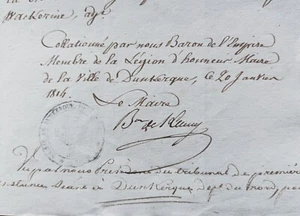 Wackernie, adjt
Collationné par nous Baron de l'Empire
Membre de la Légion d'honneur Maire
de la Ville de Dunkerque, ce 20 Janvier
1814.
Le Maire
Bon de Kenny
Vu par nous Président du tribunal de première
instance séant à Dunkerque dépt du nord, pour